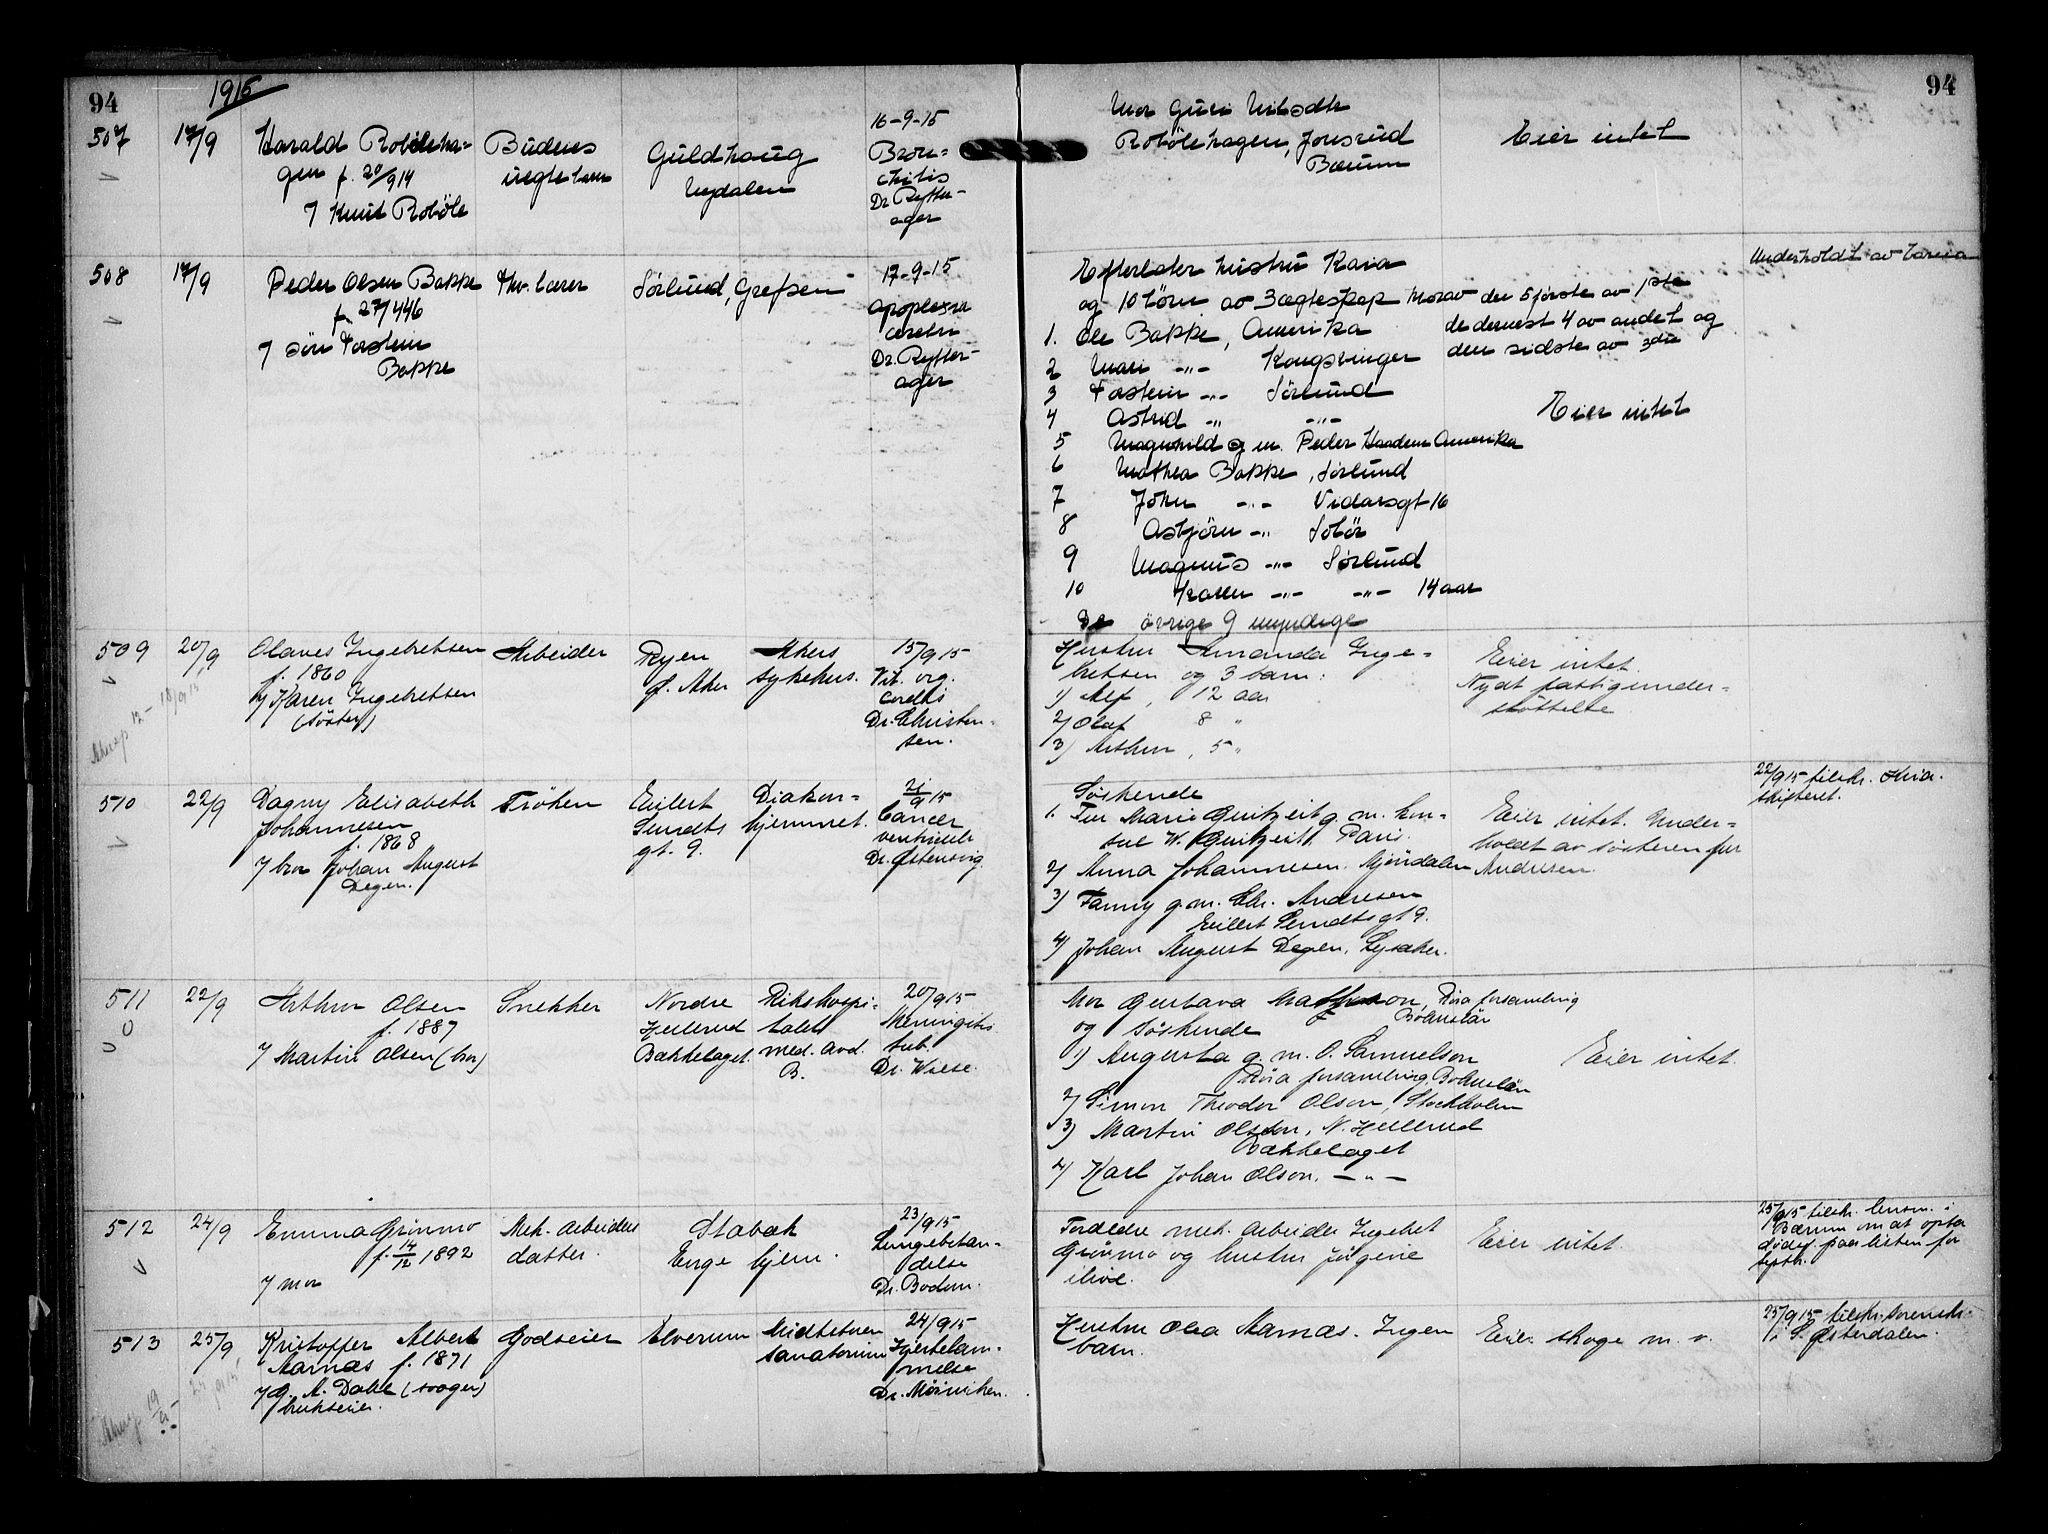 94
1915
94
507
17/9
Harald Robölsha-
gen f. 20/9 14
7 Knut Roböle
Budeies
uegte barn
Guldhaug
Nydalen
16-9-15
Bron-
chitis
Dr Rytter-
ager
Mor Guri
Robölshagen, Jonsrud
Bærum
Eier intet
508
17/9
Peder Olsen Bakke
f. 27/4 46
7 sön Torstein
Bakke
fhv. lærer
Sørlund, Grefsen
17-9-15
Apoplexia
cerebri
Dr. Rytter-
ager
Efterlater hustru Kaia
og 10 börn av 3 ægteskap hvorav de 5 første av 1ste
de dernest 4 av andet og
den sidste av 3die
1. Ole Bakke, Amerika
2 Mari -"- Kongsvinger
3 Torstein -"- Sørlund
4 Astrid -"- -"-
5 Magnhild g m. Peder Haadem Amerika
6 Mathea Bakke, Sørlund
7 John -"- Vidarsgt 16
8 Asbjörn -"- Solör
9 Magnus -"- Sørlund
10 Karen -"- -"- 14 aar
De övrige 9 myndige
Eier intet
Underholdt av barna
509
20/9
Olaves Ingebretsen
f. 1860
7 Karen Ingebretsen
(söster)
Arbeider
Ryen
Ø. Aker
Akers
sykehus.
15/9 15
Vit. org.
cordis
Dr. Christen-
sen.
Hustru Amanda Inge-
bretsen og 3 barn:
1) Alf, 12 aar
2) Olaf 8 "
3) Arthur, 5 "
Eier intet.
Nydt fattigunder-
støttelse
510
22/9
Dagny Elisabeth
Johannesen
f. 1868
7 bror Johan August
Degen.
Frøken
Eilert
Sundts
gt. 9.
Diakon-
hjemmet.
21/9 15
Cancer
ventriculi
Dr. Østensvig.
Söskende
1. Fru Marie Gutzeit g. m. kon-
sul W. Gutzeit, Paris.
2) Anna Johannesen, Mjöndalen
3) Fanny g. m. Chr. Andresen
Eilert Sundts gt 9.
4) Johan August Degen, Lysaker.
Eier intet. Under-
holdt av søsteren fru
Andresen.
22/9 15 tilskr. Kria.
skifteret.
511
22/9
Arthur Olsen
f. 1887
7 Martin Olsen (bro)
Snekker
Nordre
Hellerud
Bækkelaget.
Rikshospi-
talet
med. avd.
B.
20/9 15
Meningitis
tub.
Dr. Wiese.
Mor Gustava Mathson, Röra forsamling
Bohuslän
og söskende
1) Augusta g. m. O. Samuelson
Röra forsamling, Bohuslän
2) Simon Theodor Olson, Stockholm
3) Martin Olson, N. Hellerud
Bækkelaget
4) Karl Johan Olson, — " —
Eier intet.
512
24/9
Emma Grinmo
f. 14/12 1892
7 mor
Mek. arbeiders
datter.
Stabæk
Enge hjem.
23/9 15
Lungebetæn-
delse
Dr. Bodom.
Forældre mek. arbeider Ingebret
Grinmo og hustru Jörgine
ilive.
Eier intet.
25/9 15 tilskr. lensm. i
Bærum om at opta
dødsf. paa listen for
septbr.
513
25/9
Kristoffer Albert
Aarnæs f. 1871
7 G. A. Dahl (svoger)
brukseier.
Godseier
Elverum
Midtstuen
sanatorium
24/9 15
Hjertelam-
melse
Dr. Mörnichen.
Hustru Olea Aarnæs. Ingen
barn.
Eier skoge m. v.
25/9 15 tilskr. sorenskr.
i S. Østerdalen.